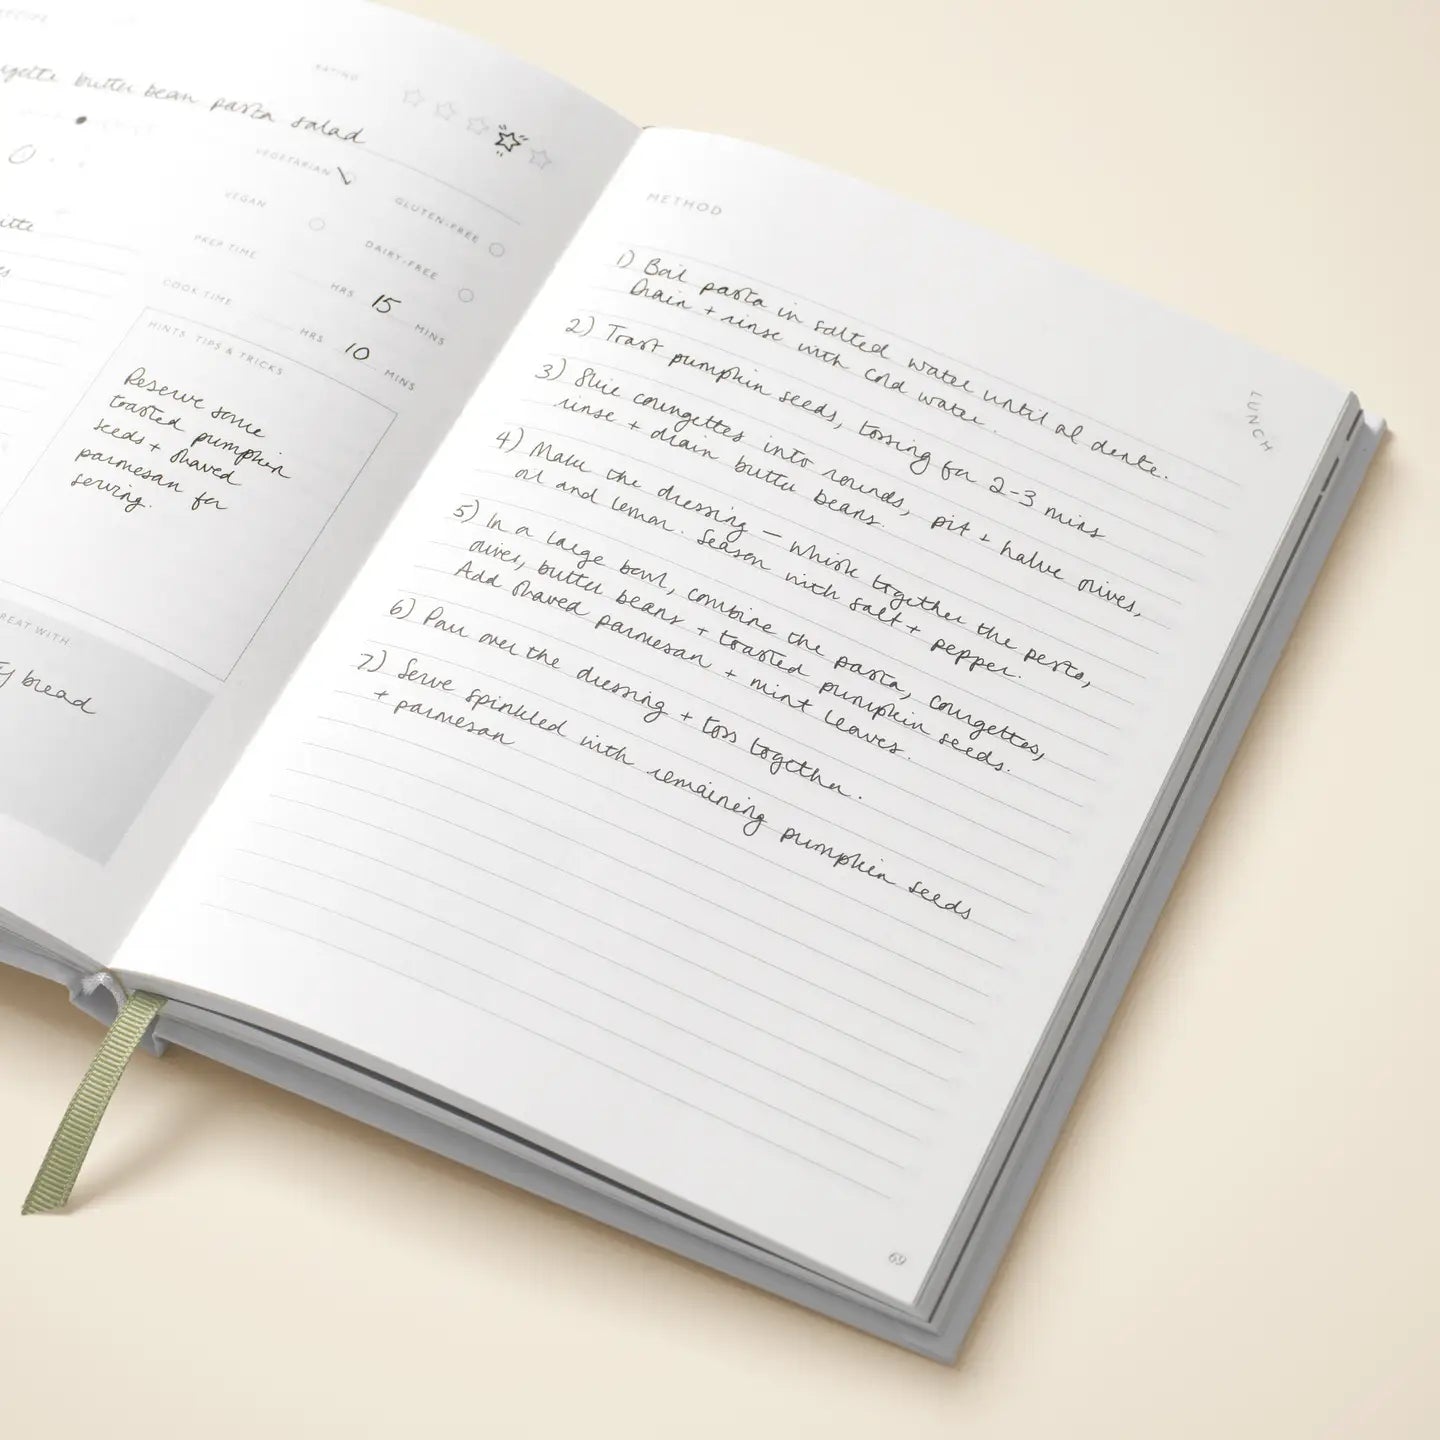 RECIPE
butter bean pasta salad
RATING
VEGETARIAN
GLUTEN-FREE
VEGAN
DAIRY-FREE
PREP TIME HRS 15 MINS
COOK TIME HRS 10 MINS
HINTS, TIPS & TRICKS
Reserve some
toasted pumpkin
seeds + shaved
parmesan for
serving.
bread
METHOD
1) Boil pasta in salted water until al dente.
Drain + rinse with cold water.
2) Toast pumpkin seeds, tossing for 2-3 mins
3) Slice courgettes into rounds, pit + halve olives,
rinse + drain butter beans.
4) Make the dressing – whisk together the pesto,
oil and lemon. Season with salt + pepper.
5) In a large bowl, combine the pasta, courgettes,
olives, butter beans + toasted pumpkin seeds.
Add shaved parmesan + mint leaves.
6) Pour over the dressing + toss together.
7) Serve spinkled with remaining pumpkin seeds
+ parmesan
LUNCH
69